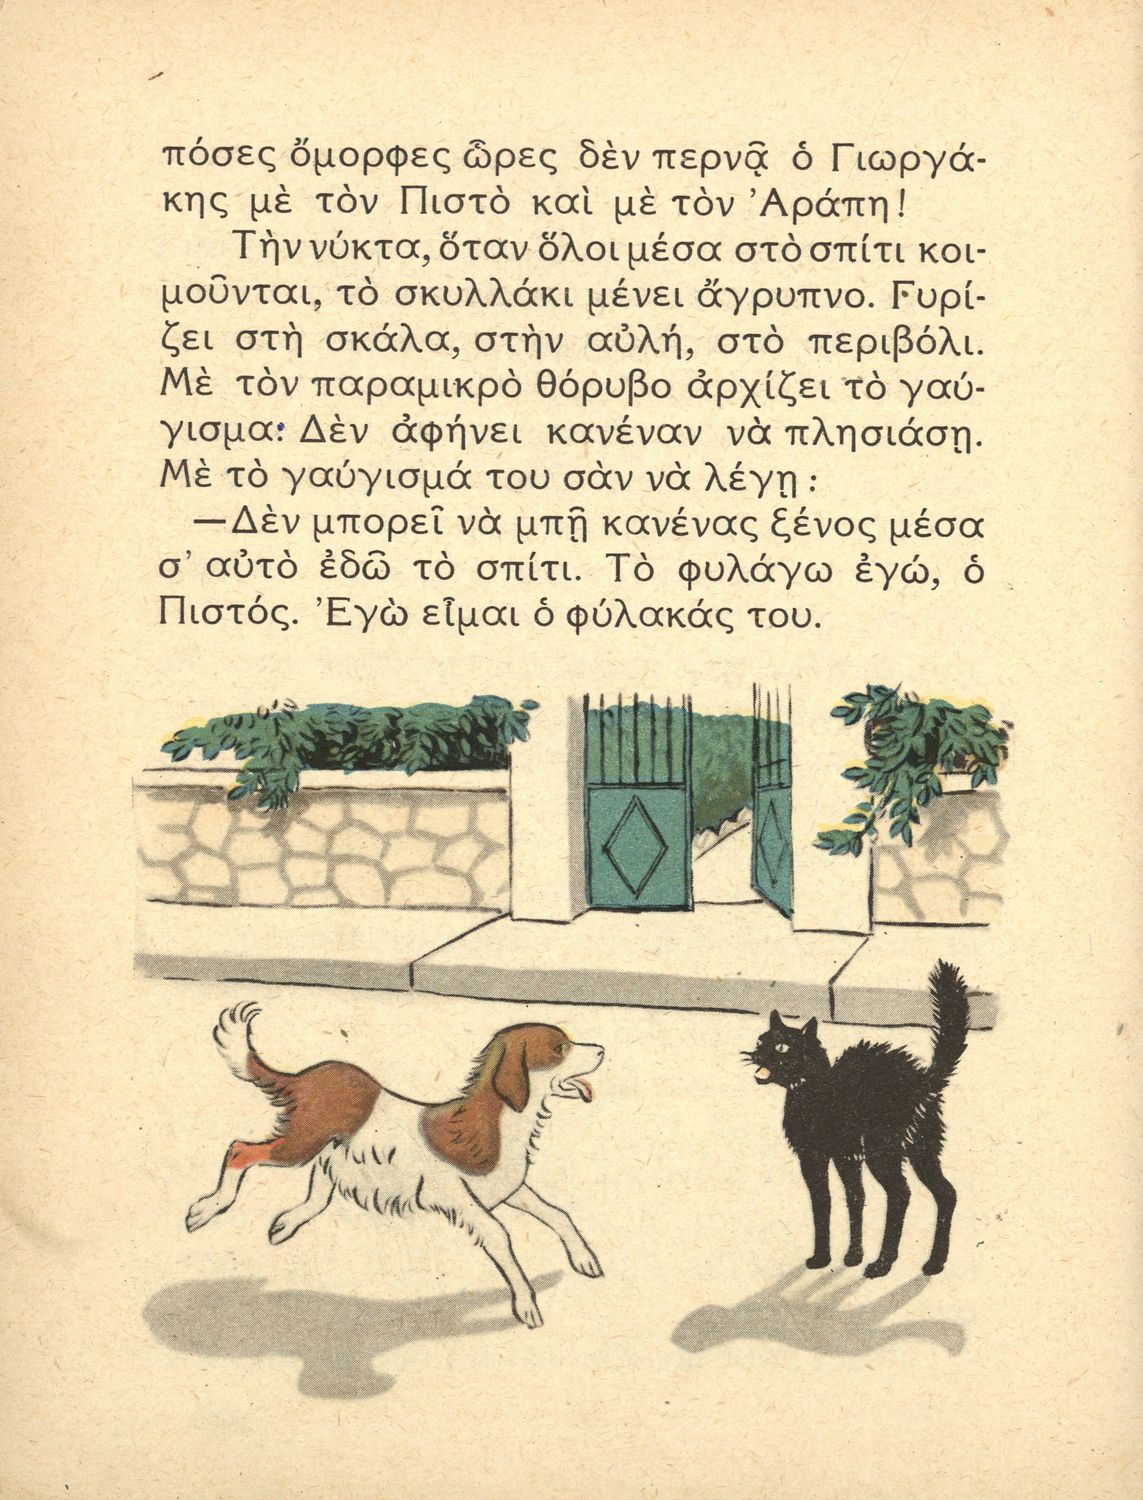 πόσες ὄμορφες ὧρες δὲν περνᾷ ὁ Γιωργά-
κης μὲ τὸν Πιστὸ καὶ μὲ τὸν Ἀράπη!
Τὴν νύκτα, ὅταν ὅλοι μέσα στὸ σπίτι κοι-
μοῦνται, τὸ σκυλλάκι μένει ἄγρυπνο. Γυρί-
ζει στὴ σκάλα, στὴν αὐλή, στὸ περιβόλι.
Μὲ τὸν παραμικρὸ θόρυβο ἀρχίζει τὸ γαύ-
γισμα: Δὲν ἀφήνει κανέναν νὰ πλησιάσῃ.
Μὲ τὸ γαύγισμά του σὰν νὰ λέγῃ:
—Δὲν μπορεῖ νὰ μπῇ κανένας ξένος μέσα
σ' αὐτὸ ἐδῶ τὸ σπίτι. Τὸ φυλάγω ἐγώ, ὁ
Πιστός. Ἐγὼ εἶμαι ὁ φύλακάς του.